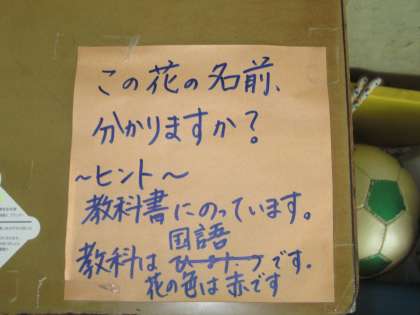 この花の名前、
分かりますか?
～ヒント～
教科書にのっています。
教科は国語です。
花の色は赤です